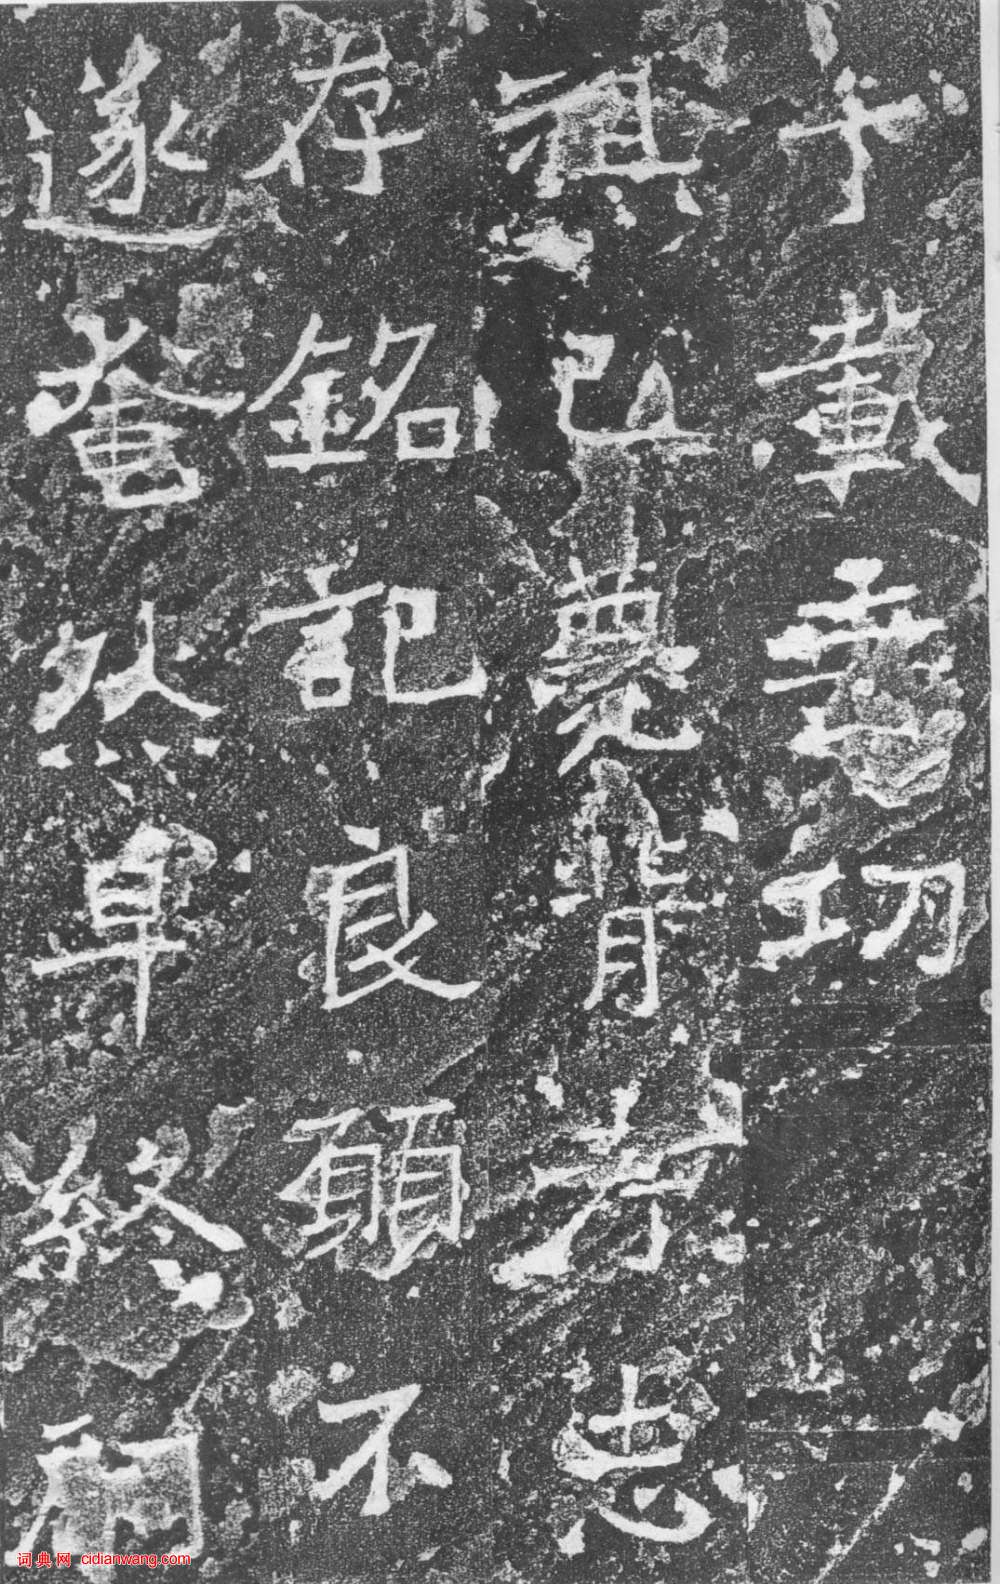 千載垂功
祖已薨背志
存銘記良願不
遂奄然早終
词典网 cidianwang.com